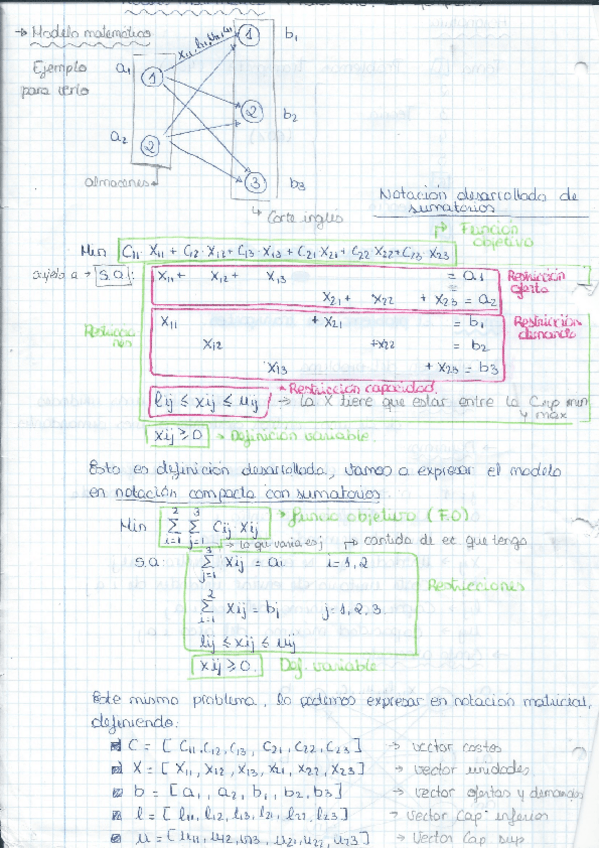 → Modelo matemático
Ejemplo
para verlo
a1
a2
1
2
1
2
3
b1
b2
b3
almacenes
Corte inglés
Notación desarrollada de
sumatorios
Función
objetivo
Min C11·X11 + C12·X12 + C13·X13 + C21·X21 + C22·X22 + C23·X23
sujeto a → s.a.:
X11 + X12 + X13 = a1
Restricción
oferta
X21 + X22 + X23 = a2
Restriccio
nes
X11 + X21 = b1
Restricción
demanda
X12 + X22 = b2
X13 + X23 = b3
* Restricción capacidad.
lij ≤ xij ≤ uij → la X tiene que estar entre la Cap min
y max
xij ≥ 0 → Definición variable.
Esto es definición desarrollada, vamos a expresar el modelo
en notación compacta con sumatorios
Min ∑i=1^2 ∑j=1^3 Cij Xij → función objetivo (F.O)
→ lo que varia es j → cantidad de ec que tengo
s.a: ∑j=1^3 Xij = ai i=1,2
∑i=1^2 Xij = bj j=1,2,3.
Restricciones
lij ≤ xij ≤ uij
xij ≥ 0. Def. variable
Este mismo problema, lo podemos expresar en notación matricial,
definiendo:
C = [C11, C12, C13, C21, C22, C23] → vector costos
X = [X11, X12, X13, X21, X22, X23] → vector unidades
b = [a1, a2, b1, b2, b3] → vector ofertas y demandas
l = [l11, l12, l13, l21, l22, l23] → vector Cap. inferios
u = [u11, u12, u13, u21, u22, u23] → Vector Cap sup